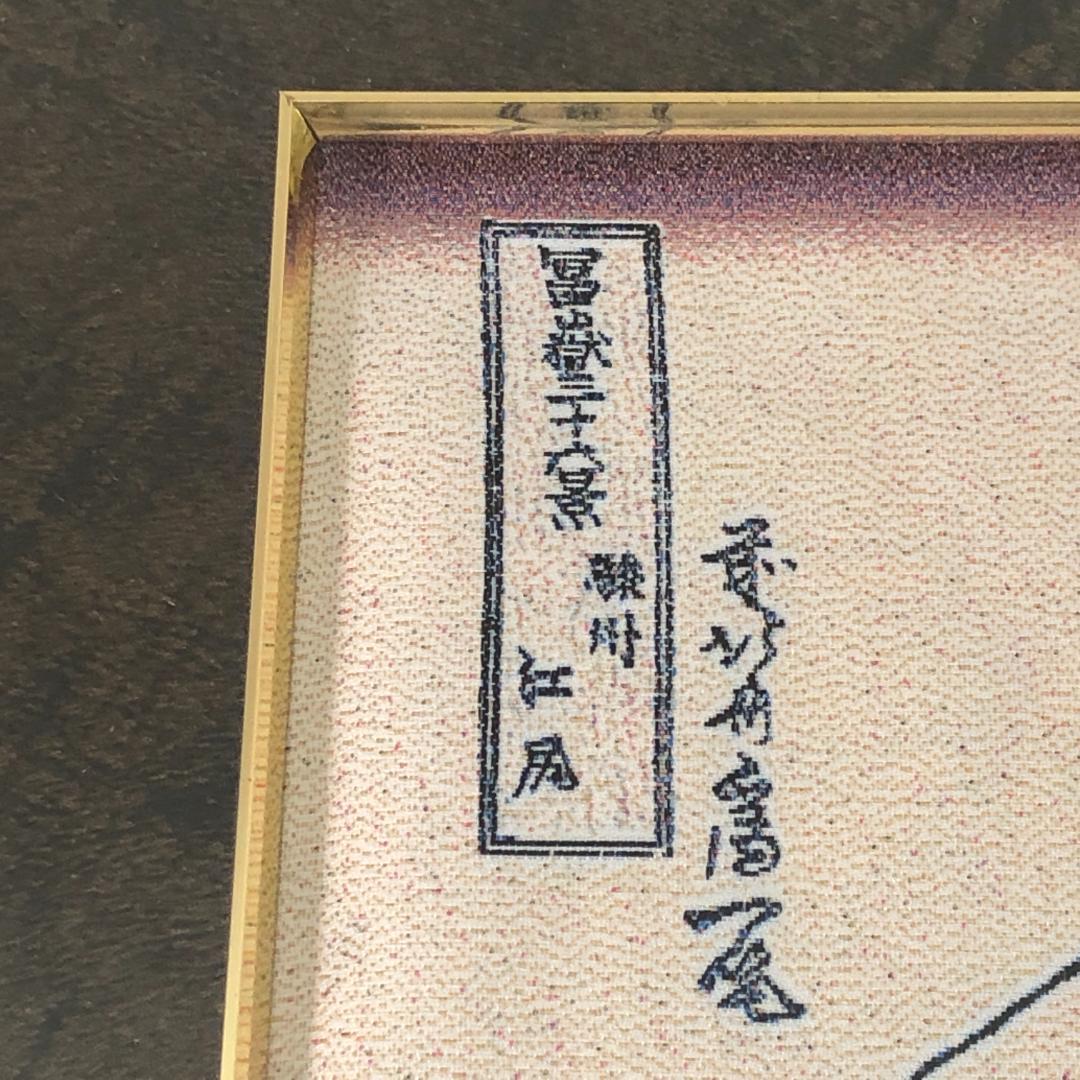 冨嶽三十六景
駿州
江尻
前北斎為一筆